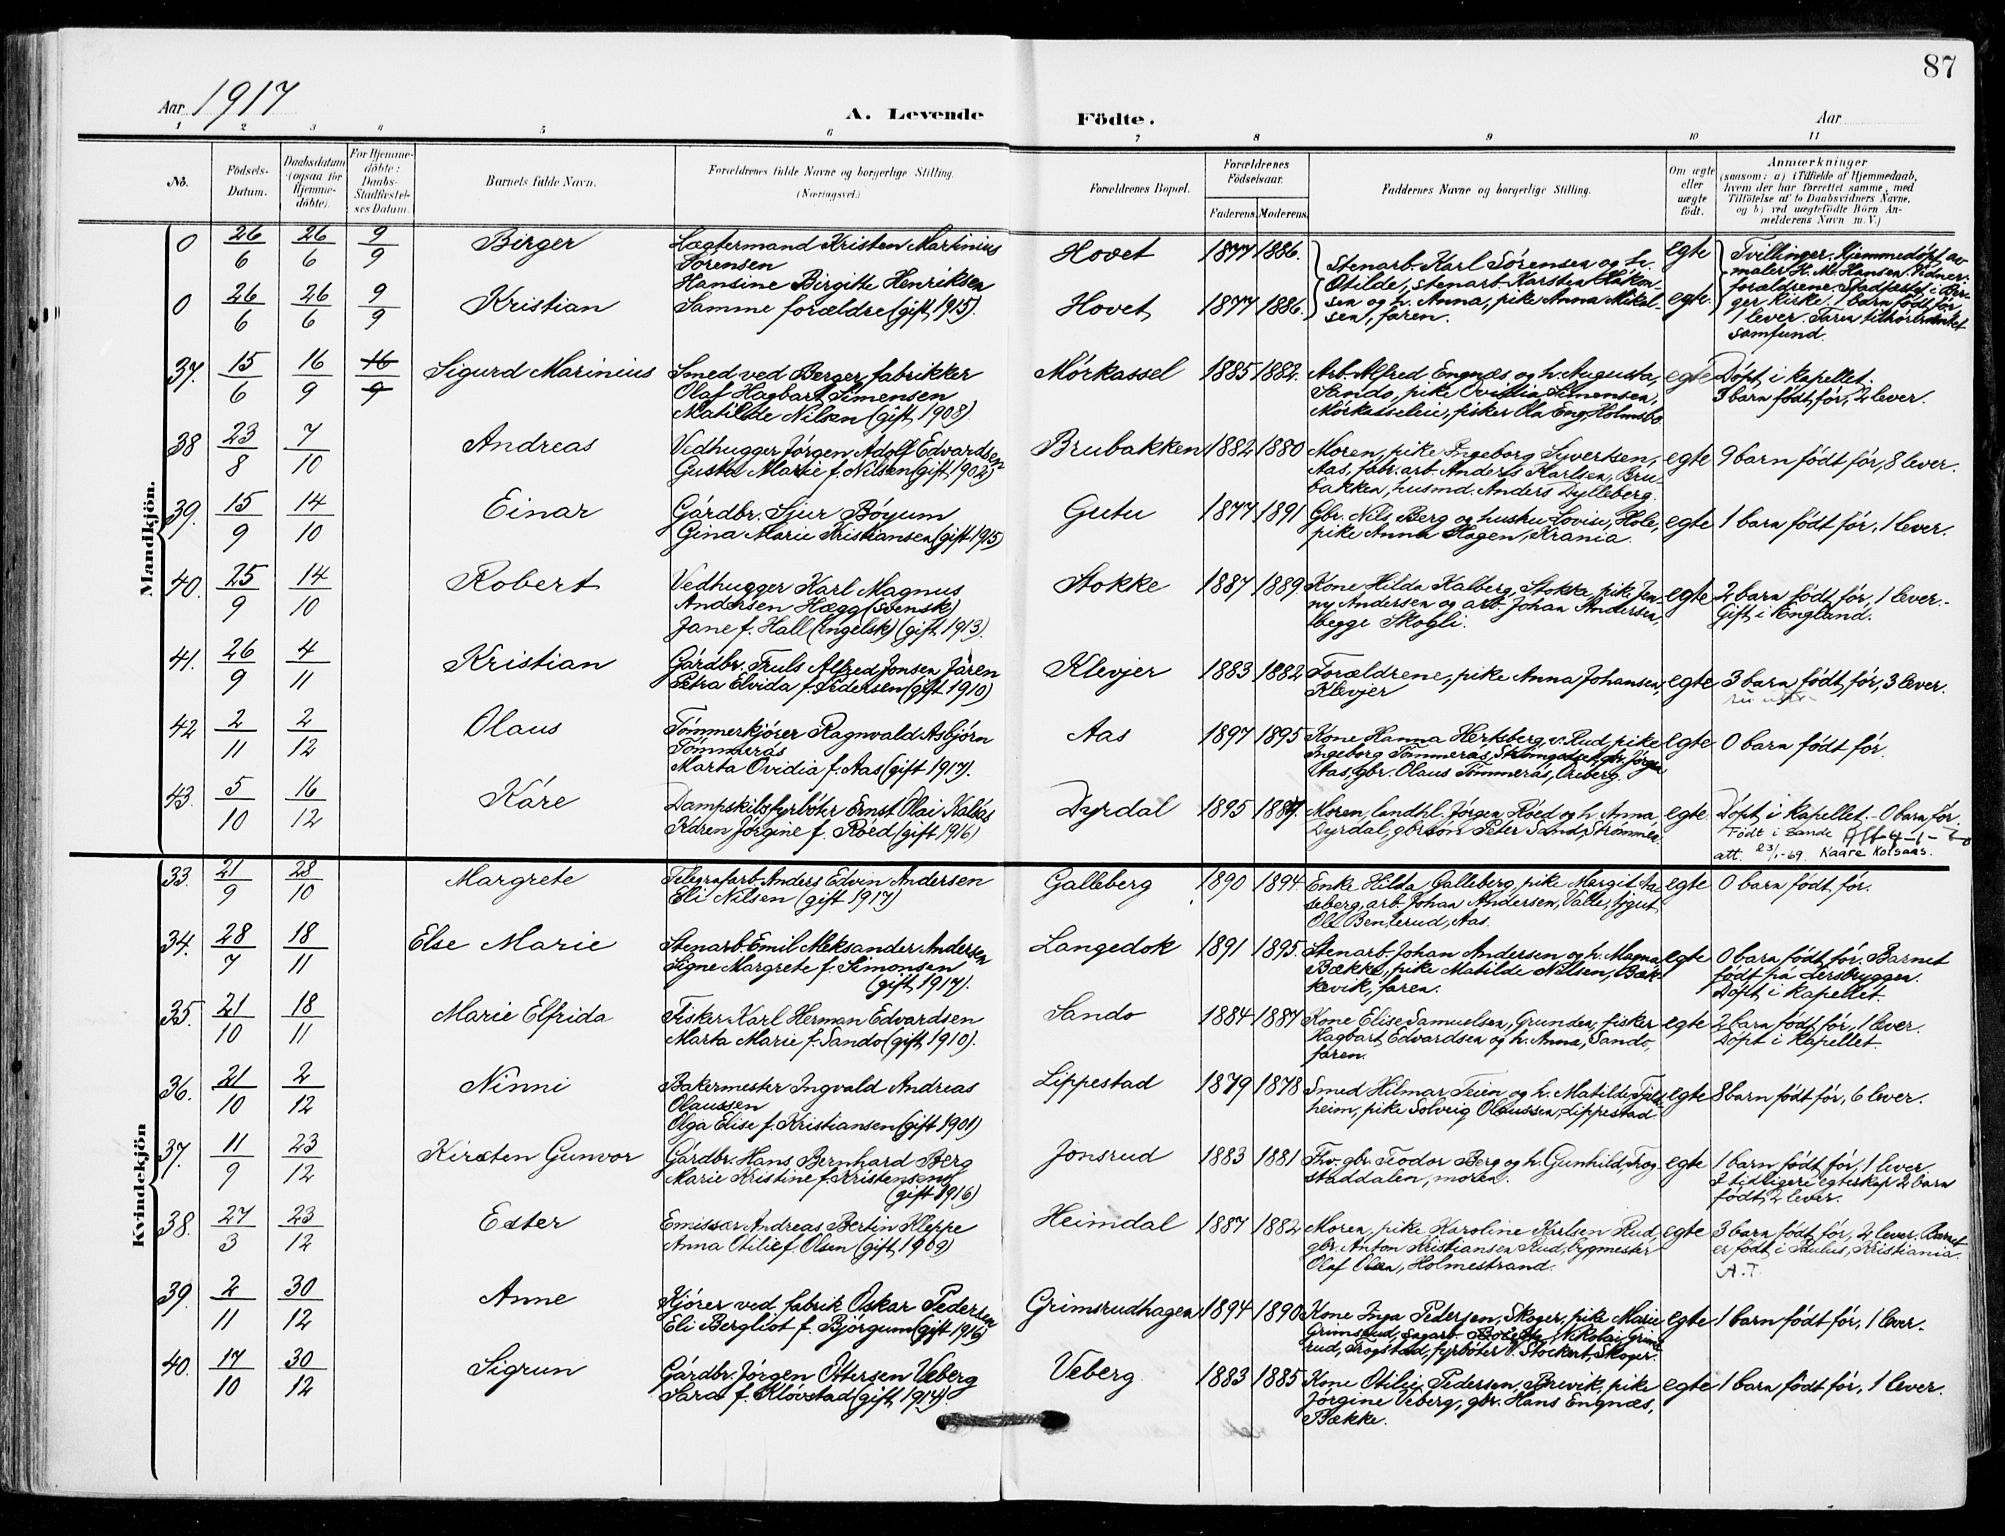 87
Aar 1917
A. Levende
Födte.
Aar
1 2 3 4 5 6 7 8 9 10 11
No.
Födsels-
Datum.
Daabsdatum
(ogsaa for
Hjemme-
döbte).
For Hjemme-
döbte:
Daabs-
Stadfæstel-
ses Datum.
Barnets fulde Navn.
Forældrenes fulde Navne og borgerlige Stilling.
(Næringsvei.)
Forældrenes Bopæl.
Forældrenes
Födselsaar.
Faderens. Moderens.
Faddernes Navne og borgerlige Stilling.
Om ægte
eller
uægte
födt.
Anmærkninger
(saasom: a) i Tilfælde af Hjemmedaab,
hvem der har forrettet samme, med
Tilföielse af to Daabsvidners Navne.
og b) ved uægtefödte Börn An-
melderens Navn m. V.)
Mandkjön.
0 26/6 26/6 9/9 Birger
Lægtermand Kristen Martinius
Sørensen
Hansine Birgitte Henriksen
Hovet 1877 1886.
Stenarb. Karl Sørensen og h.
Otilde, stenarb. Karsten Håkon-
sen og h. Anna, pike Anna Mikal-
sen, faren.
egte
Tvillinger. Hjemmedøpt av
maler H. M. Hansen. Vidner:
forældrene. Stadfæstet i Ber-
ger kirke. 1 barn født før,
1 lever. Faren tilhører
samfund.
0 26/6 26/6 9/9 Kristian
Samme forældre (gift 1915).
Hovet 1877 1886. egte.
37. 15/6 16/9 16/9 Sigurd Marinius
Smed ved Berger fabrikker
Olaf Hagbart Simensen
Matilde Nilsen (gift 1908).
Mørkassel 1885 1882.
Arb. Alfred Engnæs og h. Augusta,
Sando, pike Ovidia Simensen,
Mørkasseleie, fisker Ola Eng, Holmsbo
egte
Døpt i kapellet.
3 barn født før, 2 lever.
38 23/8 7/10 Andreas
Vedhugger Jørgen Adolf Edvardsen
Gusta Marie f. Nilsen (gift 1902)
Brubakken 1882 1880
Moren, pike Ingeborg Syvertsen,
Aas, fabr. arb. Anders Karlsen, Bru-
bakken, husmd. Anders Dylleberg.
egte
9 barn født før, 8 lever.
39. 15/9 14/10 Einar
Gårdbr. Sjur Bøyum
Gina Marie Kristiansen (gift 1915)
Gutu 1877 1891
Gbr. Nils Berg og hustru Lovise, Hole,
pike Anna Hagen, Krania.
egte
1 barn født før, 1 lever.
40. 25/9 14/10 Robert
Vedhugger Karl Magnus
Andersen Hægg (svensk)
Jane f. Hall (Engelsk) (gift 1913).
Stokke 1887 1889.
Kone Hilda Kalberg, Stokke, pike Jen-
ny Andersen og arb. Johan Andersen,
begge Skogli.
egte
2 barn født før, 1 lever.
Gift i England.
41. 26/9 4/11 Kristian
Gårdbr. Truls Alfred Jonsen Jären
Petra Elvida f. Pedersen (gift 1910)
Klevjer 1883 1882
Forældrene, pike Anna Johansen,
Klevjer
egte
3 barn født før, 3 lever.
42 2/11 2/12 Olaus
Tømmerkjører Ragnvald Asbjørn
Tømmerås
Marta Ovidia f. Aas (gift 1917).
Aas 1897 1895
Kone Hanna Hertsberg v. Rud, pike
Ingeborg Tømmerås, Strømgodset, gbr. Jørgen
Aas, gbr. Olaus Tømmerås, Öreberg.
egte
0 barn født før.
43. 5/10 16/12 Kåre
Dampskibsfyrbøter Ernst Olai Kolsås
Karen Jørgine f. Røed (gift 1916)
Dyrdal 1895 1889.
Moren, landhl. Jørgen Røed og h. Anna,
Dyrdal, gbrsøn Peter Sand, Strømmen
egte.
Døpt i kapellet. - 0 barn før.
Født i Sande Aft 4-1-
att. 23/1-69. Kaare Kolsaas.
Kvindekjön
33. 21/9 28/10 Margrete
Telegrafarb. Anders Edvin Andersen
Eli Nilsen (gift 1917)
Galleberg 1890 1894.
Enke Hilda Galleberg, pike Margit Aa-
seberg, arb. Johan Andersen, Valle, ligut
Ole Bentsrud, Aas.
egte
0 barn født før.
34. 28/7 18/11 Else Marie
Stenarb. Emil Aleksander Andersen
Signe Margrete f. Simonsen
(gift 1917).
Langedok 1891 1895.
Stenarb. Johan Andersen og h. Magna,
Bække, pike Matilde Nilsen, Bæk-
kevik, faren.
egte
0 barn født før. Barnet
født på Lersbryggen.
Døpt i kapellet.
35. 21/10 18/11 Marie Elfrida
Fisker Karl Herman Edvardsen
Marta Marie f. Sando (gift 1910).
Sando 1884 1887
Kone Elise Samuelsen, Grunden, fisker
Hagbart Edvardsen og h. Anna, Sando,
faren.
egte
2 barn født før, 1 lever.
Døpt i kapellet.
36. 21/10 2/12 Ninni
Bakermester Ingvald Andreas
Olaussen
Olga Elise f. Kristiansen (gift 1901)
Lippestad 1879 1878
Smed Hilmar Teien og h. Matilde,
heim, pike Solveig Olaussen, Lippestad
egte
8 barn født før, 6 lever.
37. 11/9 23/12 Kirsten Gunvor
Gårdbr. Hans Bernhard Berg
Marie Kristine f. Kristensen
(gift 1916)
Jonsrud 1883 1881
Fhv. gbr. Teodor Berg og h. Gunhild, Trog-
staddalen, moren.
egte
1 barn født før, 1 lever
I tidligere egteskap 2 barn
født, 2 lever.
38. 27/3 23/12 Ester
Emissær Andreas Bertin Kleppe
Anna Otilie f. Olsen (gift 1909)
Heimdal 1887 1882
Moren, pike Karoline Karlsen Rud,
gbr. Anton Kristiansen Rud, bygmester
Olaf Olsen, Holmestrand.
egte
3 barn født før, 2 lever. Barnet
er født i Paulus, Kristiania.
A.T.
39. 2/11 30/12 Anne
Kjører ved fabrik Oskar Pedersen
Eli Bergliot f. Bjørgum (gift 1916)
Grimsrudhagen 1894 1890
Kone Inga Pedersen, Skoger, pike Marie
Grimsrud, sagarb. Nikolai Grims-
rud, Trogstad, fyrbøter V. Stockert, Skoger.
egte
1 barn født før, 1 lever.
40. 17/10 30/12 Sigrun
Gårdbr. Jørgen Ottersen Veberg
Sara f. Kløvstad (gift 1914).
Veberg 1883 1885
Kone Otilie Pedersen, Brevik, pike
Jørgine Veberg, gbr. Hans Engnæs,
Bække.
egte
1 barn født før, 1 lever.